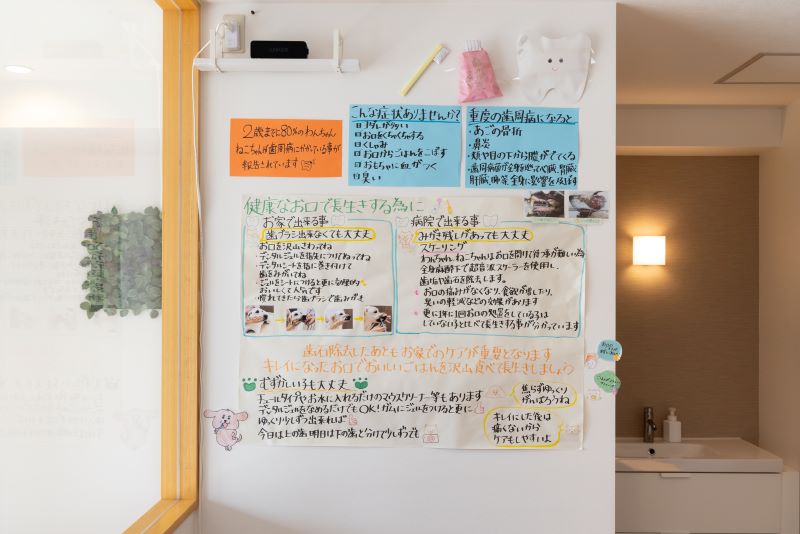 2歳までに80%のわんちゃん
ねこちゃんが歯周病にかかっている事が
報告されています
こんな症状ありませんか?
ヨダレが多い
お口をくちゃくちゃする
くしゃみ
お口からごはんをこぼす
おもちゃに血がつく
臭い
重度の歯周病になると
・あごの骨折
・鼻炎
・頬や目の下から膿がでてくる
・歯周病菌が全身を巡って心臓、腎臓
肝臓、肺等全身に影響を及ぼす
健康なお口で長生きする為に
お家で出来る事
歯ブラシ出来なくても大丈夫
・お口を沢山さわってね
・デンタルジェルを指先につけてぬってね
・デンタルシートを指に巻き付けて
歯をみがいてね
・ジェルをシートにつけると更に効果的
おいしくて人気です
・慣れてきたら歯ブラシで歯みがき
病院で出来る事
みがき残しがあっても大丈夫
スケーリング
わんちゃん、ねこちゃんはお口を開けて待つ事が難しい為
全身麻酔下で超音波スケーラーを使用し、
歯垢や歯石を除去します。
お口の痛みがなくなり、食欲が増したり、
臭いの軽減などの効果があります
更に1年に1回お口の処置をしている子は
していない子と比べて長生きする事が分かっています
歯石除去したあともお家でのケアが重要となります
キレイになったお口でおいしいごはんを沢山食べて長生きしましょう
むずかしい子も大丈夫
チュールタイプやお水に入れるだけのマウスクリーナー等もあります
デンタルジェルをなめるだけでもOK!ガムにジェルをつけると更に
ゆっくり少しずつ出来れば
今日は上の歯 明日は下の歯と分けて少しずつでも
焦らずゆっくり
がんばろうね
キレイにした後は
痛くないから
ケアもしやすいよ